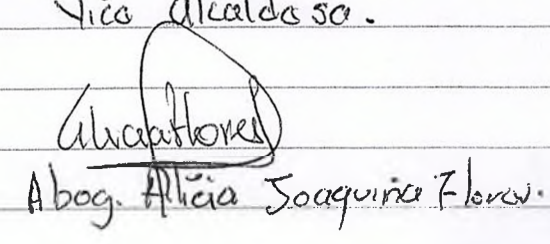 Vice Alcaldesa.
AliciaFlores
Abog. Alicia Joaquina Flores.